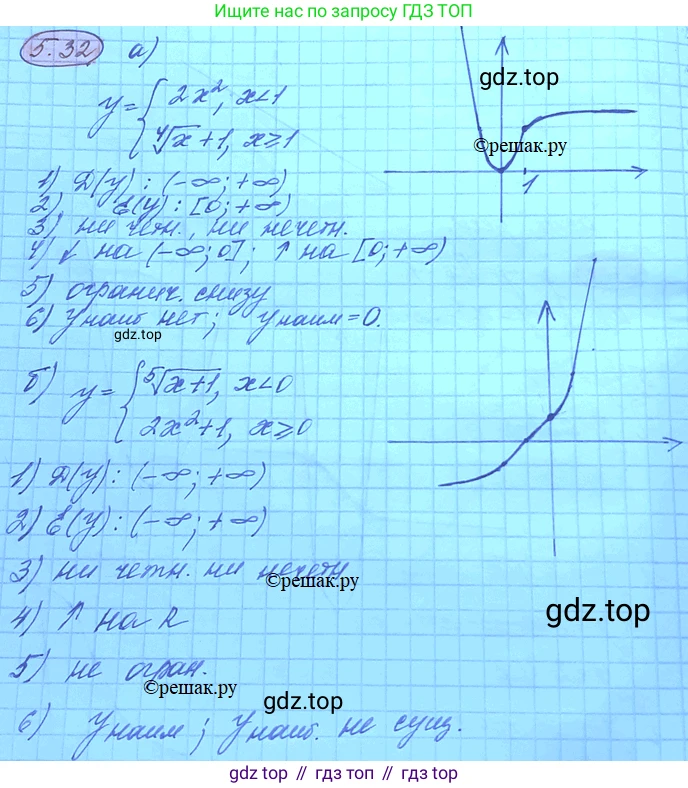 Ищите нас по запросу ГДЗ ТОП
5.32 а)
gdz.top
y = { 2x², x<1
⁴√x + 1, x ≥ 1
©решак.ру
1) Д(y) : (-∞; +∞)
1
2) E(y) : [0; +∞)
3) ни четн., ни нечетн.
4) ↓ на (-∞; 0]; ↑ на [0; +∞)
5) огранич. снизу
6) y наиб нет; y наим = 0.
gdz.top
б) y = { ⁵√x+1, x<0
2x²+1, x ≥ 0
1) Д(y) : (-∞; +∞)
2) E(y) : (-∞; +∞)
3) ни четн. ни нечетн
©решак.ру
4) ↑ на R
gdz.top
5) не огран.
©решак.ру
gdz.top
6) y наим ; y наиб. не сущ.
gdz top // гдз топ // gdz.top